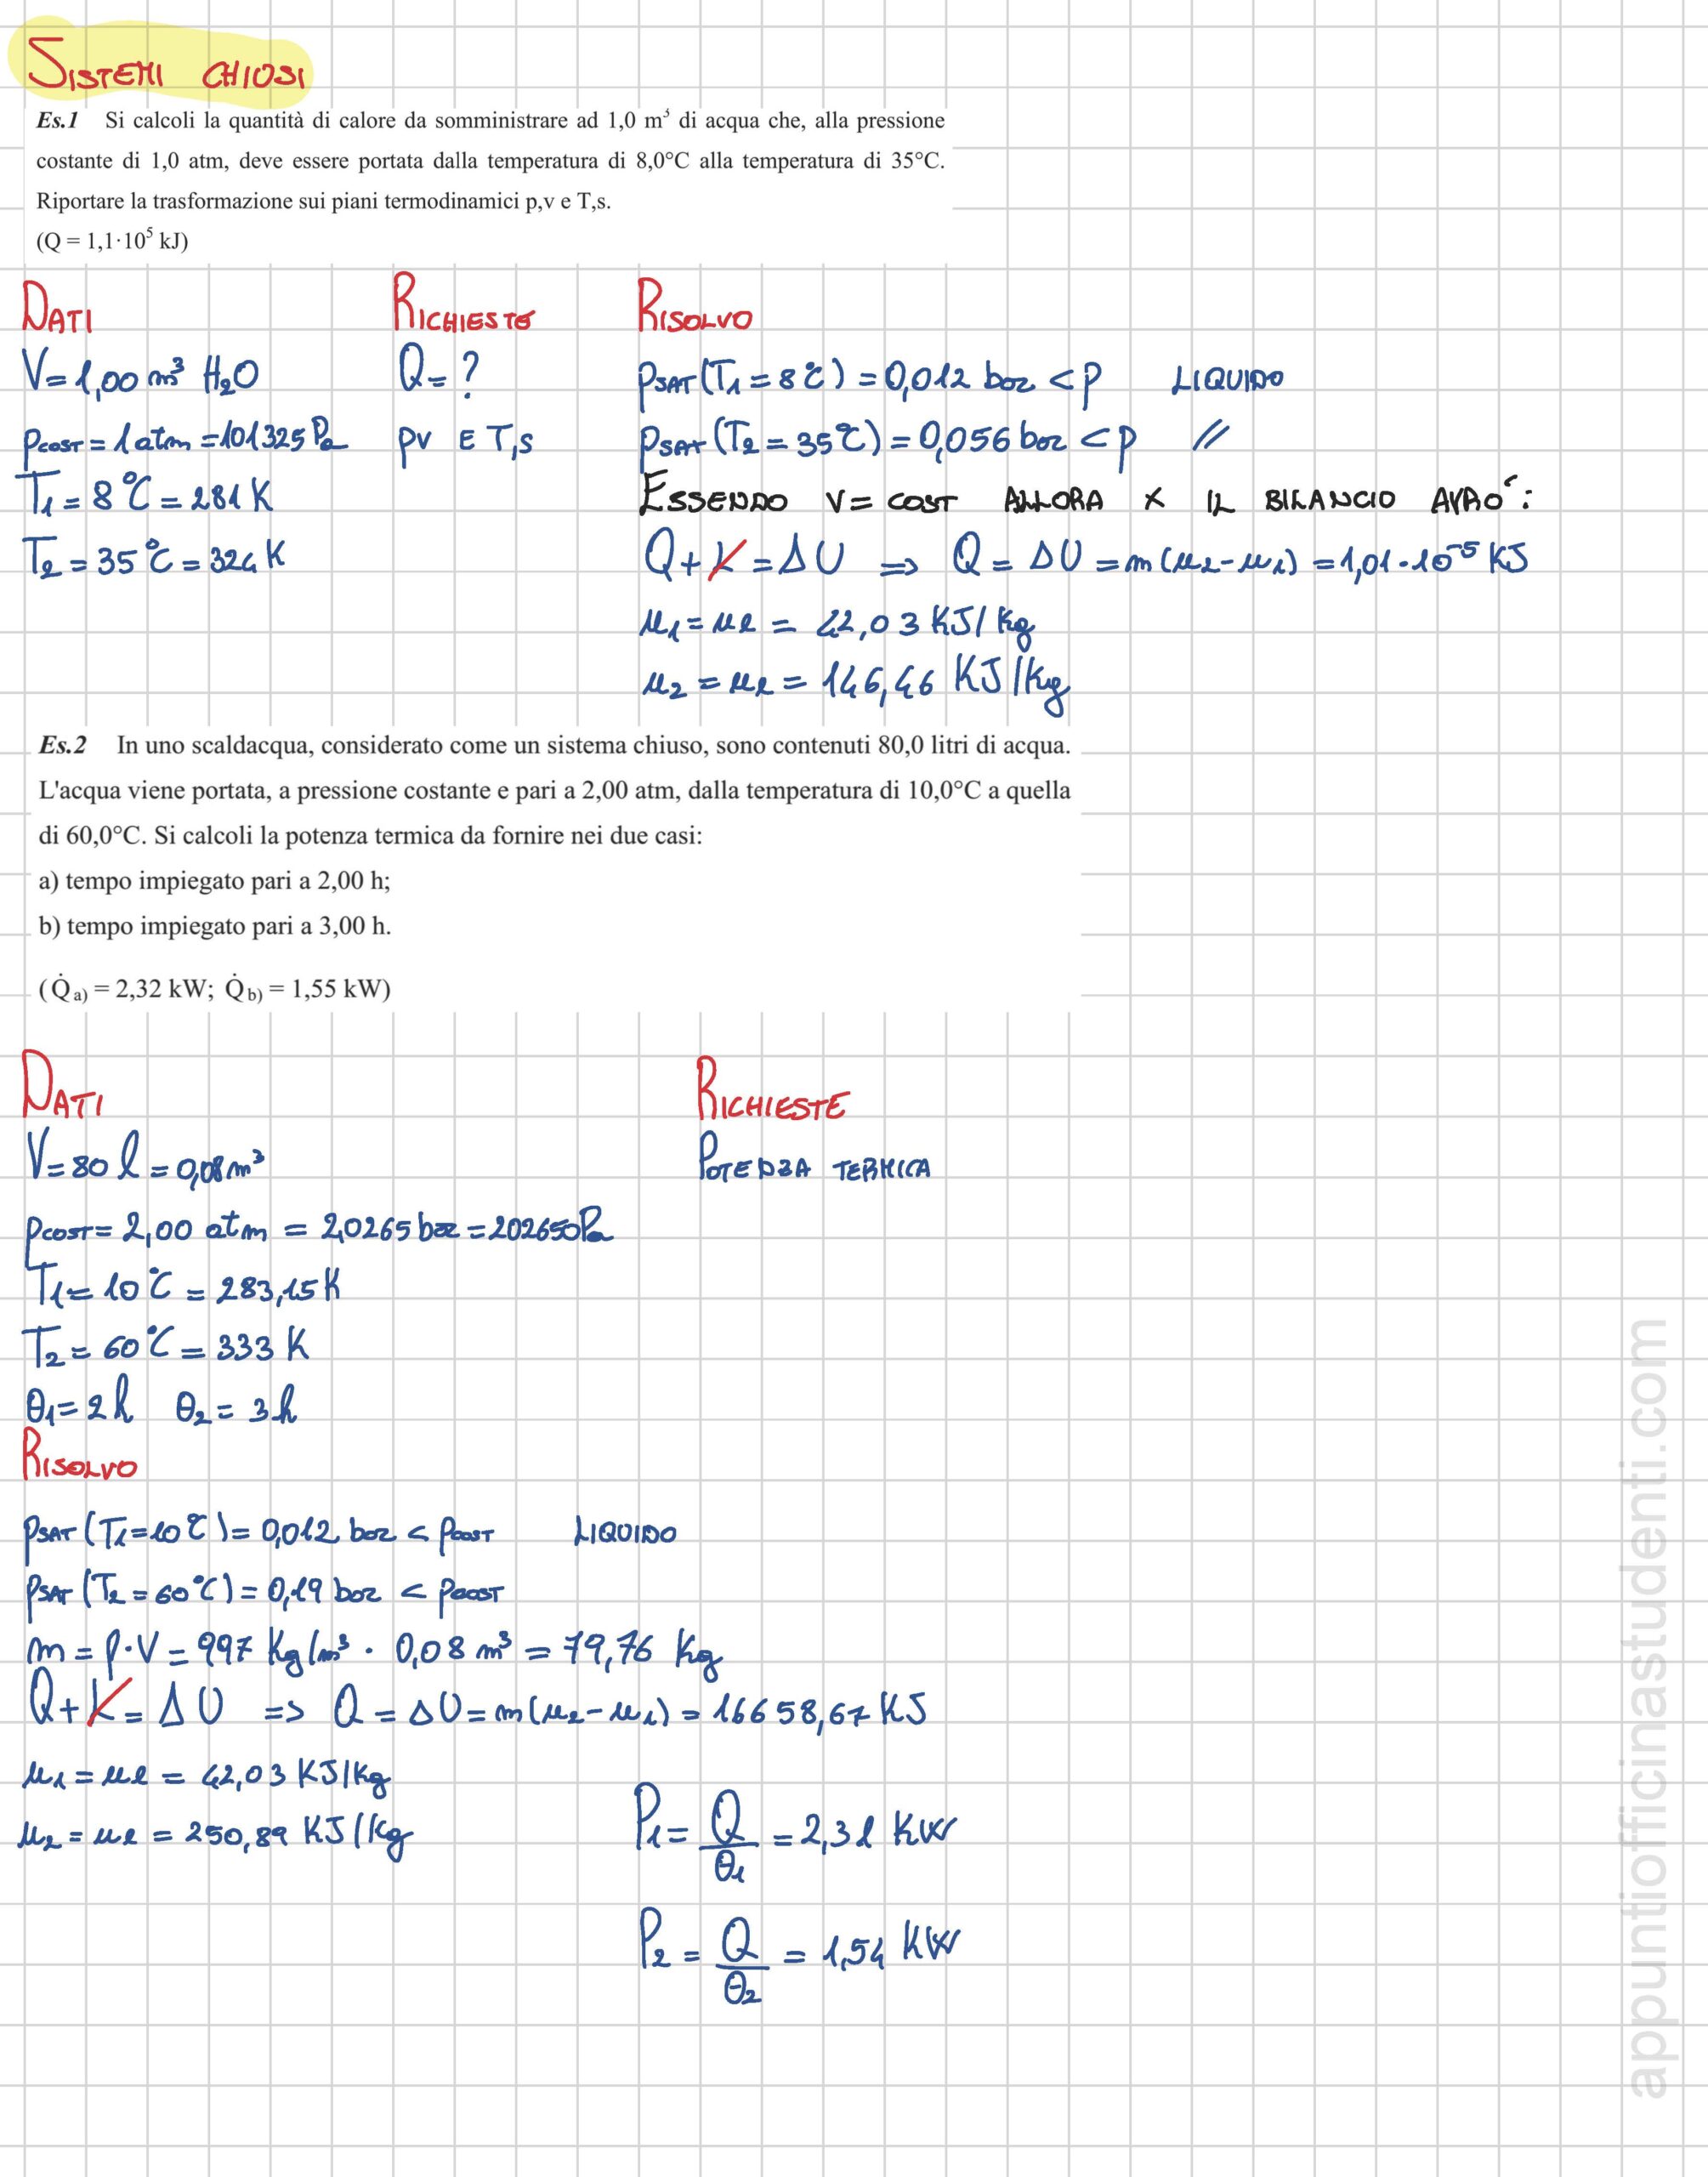 SISTEMI CHIUSI
Es.1 Si calcoli la quantità di calore da somministrare ad 1,0 m³ di acqua che, alla pressione
costante di 1,0 atm, deve essere portata dalla temperatura di 8,0°C alla temperatura di 35°C.
Riportare la trasformazione sui piani termodinamici p,v e T,s.
(Q = 1,1·10⁵ kJ)
DATI
V = 1,00 m³ H₂O
pCOST = 1 atm = 101325 Pa
T₁ = 8°C = 281 K
T₂ = 35°C = 324 K
RICHIESTE
Q = ?
PV E T,S
RISOLVO
pSAT (T₁ = 8°C) = 0,012 bar < p LIQUIDO
pSAT (T₂ = 35°C) = 0,056 bar < p //
ESSENDO V = COST ALLORA X IL BILANCIO AVRO':
Q + L = ΔU => Q = ΔU = m (u₂ - u₁) = 1,01 · 10⁻⁵ KJ
u₁ = ul = 42,03 KJ/Kg
u₂ = ul = 146,46 KJ/Kg
Es.2 In uno scaldacqua, considerato come un sistema chiuso, sono contenuti 80,0 litri di acqua.
L'acqua viene portata, a pressione costante e pari a 2,00 atm, dalla temperatura di 10,0°C a quella
di 60,0°C. Si calcoli la potenza termica da fornire nei due casi:
a) tempo impiegato pari a 2,00 h;
b) tempo impiegato pari a 3,00 h.
(Q̇a) = 2,32 kW; Q̇b) = 1,55 kW)
DATI
V = 80 l = 0,08 m³
pCOST = 2,00 atm = 2,0265 bar = 202650 Pa
T₁ = 10°C = 283,15 K
T₂ = 60°C = 333 K
θ₁ = 2h θ₂ = 3h
RICHIESTE
POTENZA TERMICA
RISOLVO
pSAT (T₁ = 10°C) = 0,012 bar < pCOST LIQUIDO
pSAT (T₂ = 60°C) = 0,19 bar < pCOST
m = ρ · V = 997 Kg/m³ · 0,08 m³ = 79,76 Kg
Q + L = ΔU => Q = ΔU = m (u₂ - u₁) = 16658,67 KJ
u₁ = ul = 42,03 KJ/Kg
u₂ = ul = 250,89 KJ/Kg
P₁ = Q/θ₁ = 2,31 KW
P₂ = Q/θ₂ = 1,54 KW
appuntiofficinastudenti.com